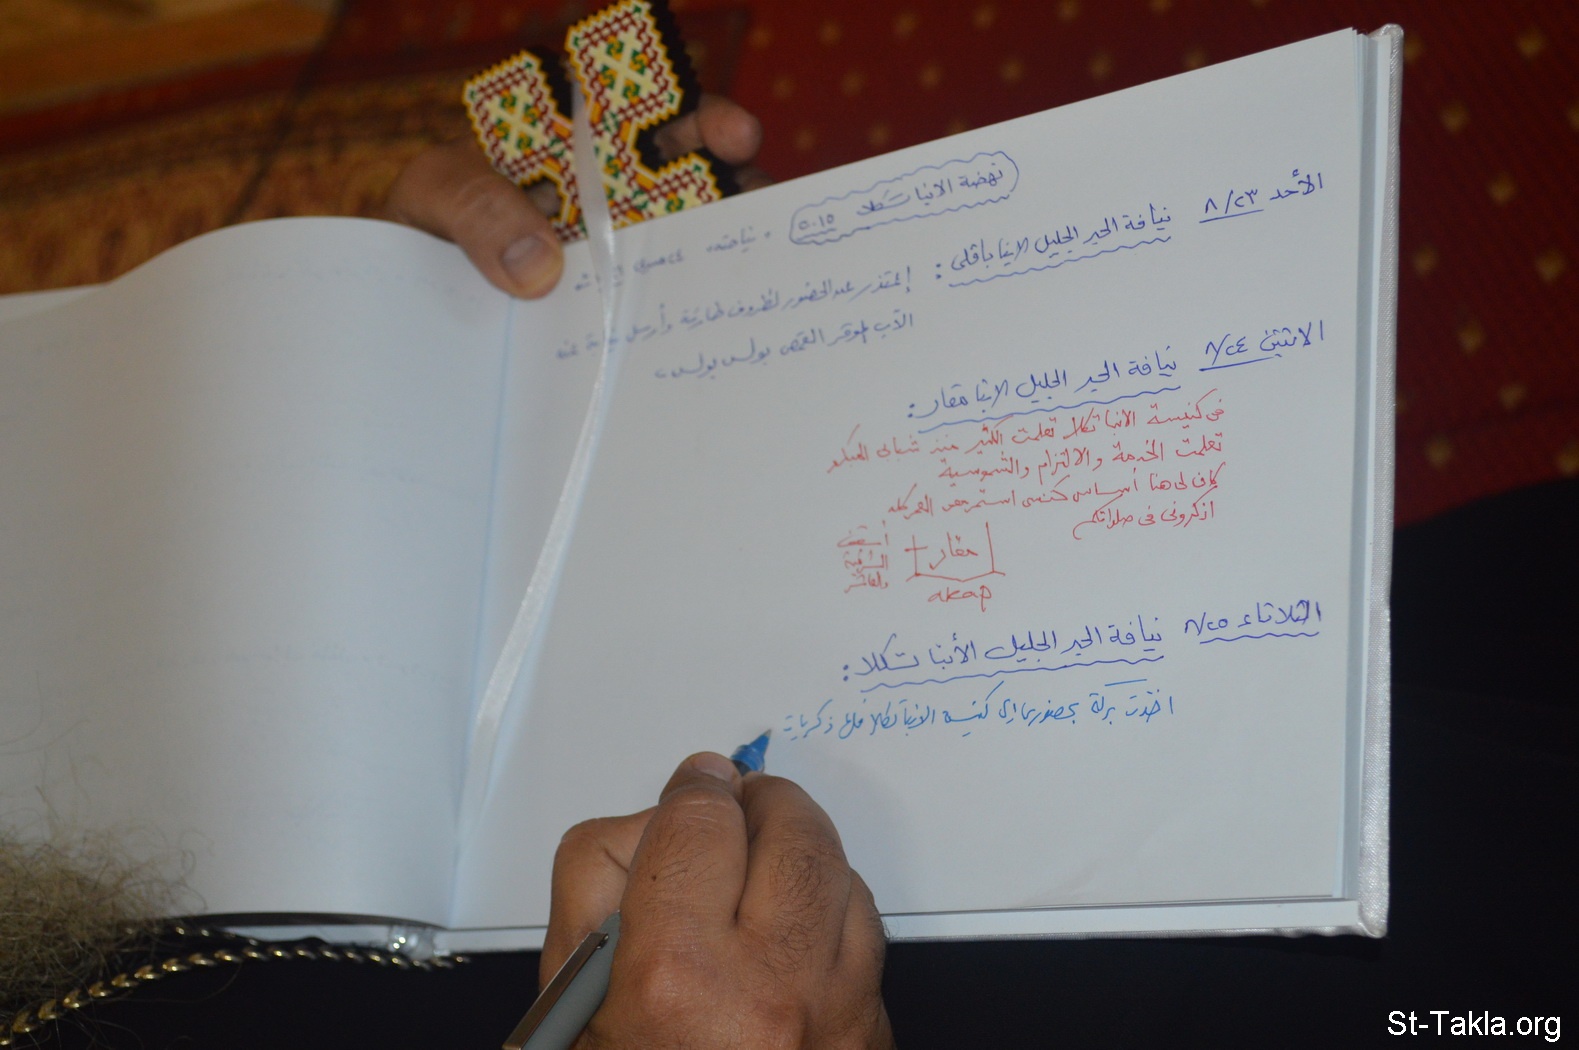 نهضة الانبا تكلا ٢٠١٥ . نياحته
الأحد ٨/٢٣ نيافة الحبر الجليل الانبا بافلى :
إعتذر عن الحضور لظروف طارئة وأرسل نيابة عنه
الآب الموقر القمص بولس بولس
الاثنين ٨/٢٤ نيافة الحبر الجليل الانبا مقار :
فى كنيسة الانبا تكلا تعلمت الكثير منذ شبابى المبكر
تعلمت الخدمة والالتزام والشموسية
كان لى هنا أساس كنسى استمر معى العمر كله
اذكرونى فى صلواتكم
مقار
أسقف
الشرقية
والعاشر
الثلاثاء ٨/٢٥ نيافة الحبر الجليل الأنبا تكلا :
اخذت بركة بحضورى الى كنيسة الانبا تكلا ذكريات
St-Takla.org